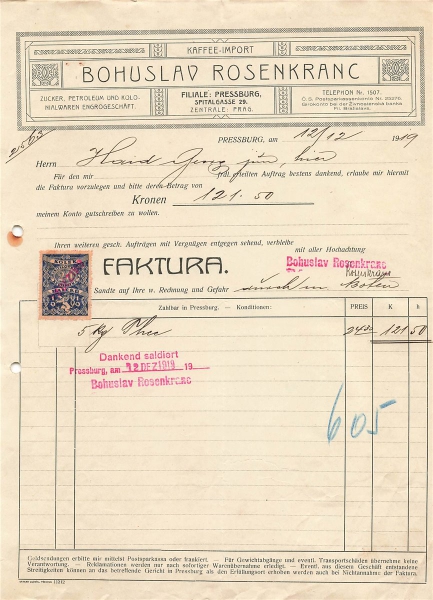 KAFFEE-IMPORT
BOHUSLAV ROSENKRANC
ZUCKER, PETROLEUM UND KOLO-
NIALWAREN ENGROGESCHÄFT.
FILIALE: PRESSBURG,
SPITALGASSE 29.
ZENTRALE: PRAG.
TELEPHON Nr. 1507.
PRESSBURG, am 12/12 1919
Herrn Haid Georg jun, hier
Für den mir frdl. erteilten Auftrag bestens dankend, erlaube mir hiermit
die Faktura vorzulegen und bitte deren Betrag von
Kronen 121.50
meinem Konto gutschreiben zu wollen.
Ihren weiteren gesch. Aufträgen mit Vergnügen entgegen sehend, verbleibe
mit aller Hochachtung
Bohuslav Rosenkranc
FAKTURA.
Sandte auf Ihre w. Rechnung und Gefahr durch m Boten
Zahlbar in Pressburg. — Konditionen: PREIS K h
5 Kg Thee 24.30 121 50
Dankend saldiert
Pressburg, am 12 DEZ 1919 19
Bohuslav Rosenkranc
605
Geldsendungen erbitte mir mittelst Postsparkassa oder frankiert. — Für Gewichtabgänge und eventl. Transportschäden übernehme keine
Verantwortung. — Reklamationen werden nur nach sofortiger Warenübernahme erledigt. — Event. aus diesem Geschäft entstandene
Streitigkeiten können an das betreffende Gericht in Pressburg als den Erfüllungsort erhoben werden auch bei Nichtannahme der Faktura.